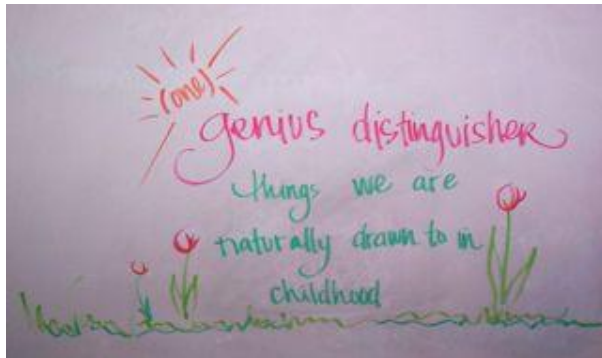 (one)
genius distinguisher
things we are
naturally drawn to in
childhood